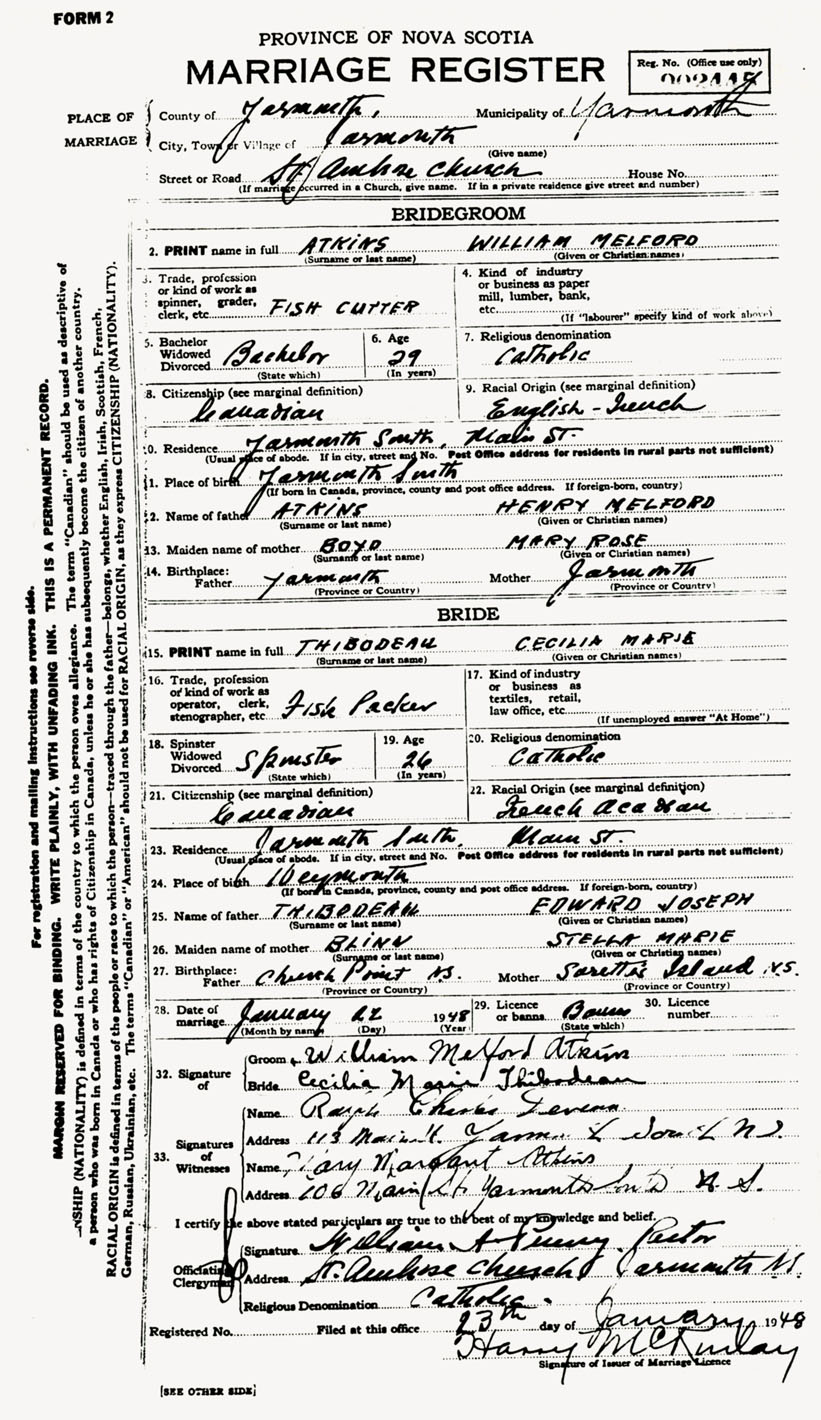 FORM 2
PROVINCE OF NOVA SCOTIA
MARRIAGE REGISTER
Reg. No. (Office use only)
PLACE OF MARRIAGE
County of Yarmouth, Municipality of Yarmouth
City, Town or Village of Yarmouth
(Give name)
Street or Road St. Ambrose Church House No.
(If marriage occurred in a Church, give name. If in a private residence give street and number)
BRIDEGROOM
2. PRINT name in full ATKINS WILLIAM MELFORD
(Surname or last name) (Given or Christian names)
3. Trade, profession or kind of work as spinner, grader, clerk, etc. FISH CUTTER
4. Kind of industry or business as paper mill, lumber, bank, etc.
(If "labourer" specify kind of work above)
5. Bachelor Widowed Divorced Bachelor
(State which)
6. Age 29
(In years)
7. Religious denomination
Catholic
8. Citizenship (see marginal definition)
Canadian
9. Racial Origin (see marginal definition)
English - French
0. Residence Yarmouth South, Main St.
(Usual place of abode. If in city, street and No. Post Office address for residents in rural parts not sufficient)
1. Place of birth Yarmouth South
(If born in Canada, province, county and post office address. If foreign-born, country)
2. Name of father ATKINS HENRY MELFORD
(Surname or last name) (Given or Christian names)
13. Maiden name of mother BOYD MARY ROSE
(Surname or last name) (Given or Christian names)
14. Birthplace: Father Yarmouth Mother Yarmouth
(Province or Country) (Province or Country)
BRIDE
15. PRINT name in full THIBODEAU CECILIA MARIE
(Surname or last name) (Given or Christian names)
16. Trade, profession or kind of work as operator, clerk, stenographer, etc. Fish Packer
17. Kind of industry or business as textiles, retail, law office, etc.
(If unemployed answer "At Home")
18. Spinster Widowed Divorced Spinster
(State which)
19. Age 26
(In years)
20. Religious denomination
Catholic
21. Citizenship (see marginal definition)
Canadian
22. Racial Origin (see marginal definition)
French Acadian
23. Residence Yarmouth South, Main St.
(Usual place of abode. If in city, street and No. Post Office address for residents in rural parts not sufficient)
24. Place of birth Weymouth
(If born in Canada, province, county and post office address. If foreign-born, country)
25. Name of father THIBODEAU EDWARD JOSEPH
(Surname or last name) (Given or Christian names)
26. Maiden name of mother BLINN STELLA MARIE
(Surname or last name) (Given or Christian names)
27. Birthplace: Father Church Point N.S. Mother Island N.S.
(Province or Country) (Province or Country)
28. Date of marriage January 22 1948
(Month by name) (Day) (Year)
29. Licence or banns Banns
(State which)
30. Licence number
32. Signature of
Groom William Melford Atkins
Bride Cecilia Marie Thibodeau
33. Signatures of Witnesses
Name Ralph Charles
Address 113 Main St. N.S.
Name Mary Margaret Atkins
Address 106 Main St. Yarmouth South N.S.
I certify the above stated particulars are true to the best of my knowledge and belief.
Officiating Clergyman
Signature William A. Penny, Pastor
Address St. Ambrose Church Yarmouth N.S.
Religious Denomination Catholic.
Registered No. Filed at this office 23th day of January 1948
Harry McKinlay
Signature of Issuer of Marriage Licence
[SEE OTHER SIDE]
For registration and mailing instructions see reverse side.
MARGIN RESERVED FOR BINDING. WRITE PLAINLY, WITH UNFADING INK. THIS IS A PERMANENT RECORD.
NSHIP (NATIONALITY) is defined in terms of the country to which the person owes allegiance. The term "Canadian" should be used as descriptive of
a person who was born in Canada or who has rights of Citizenship in Canada, unless he or she has subsequently become the citizen of another country.
RACIAL ORIGIN is defined in terms of the people or race to which the person—traced through the father—belongs, whether English, Irish, Scottish, French,
German, Russian, Ukrainian, etc. The terms "Canadian" or "American" should not be used for RACIAL ORIGIN, as they express CITIZENSHIP (NATIONALITY).